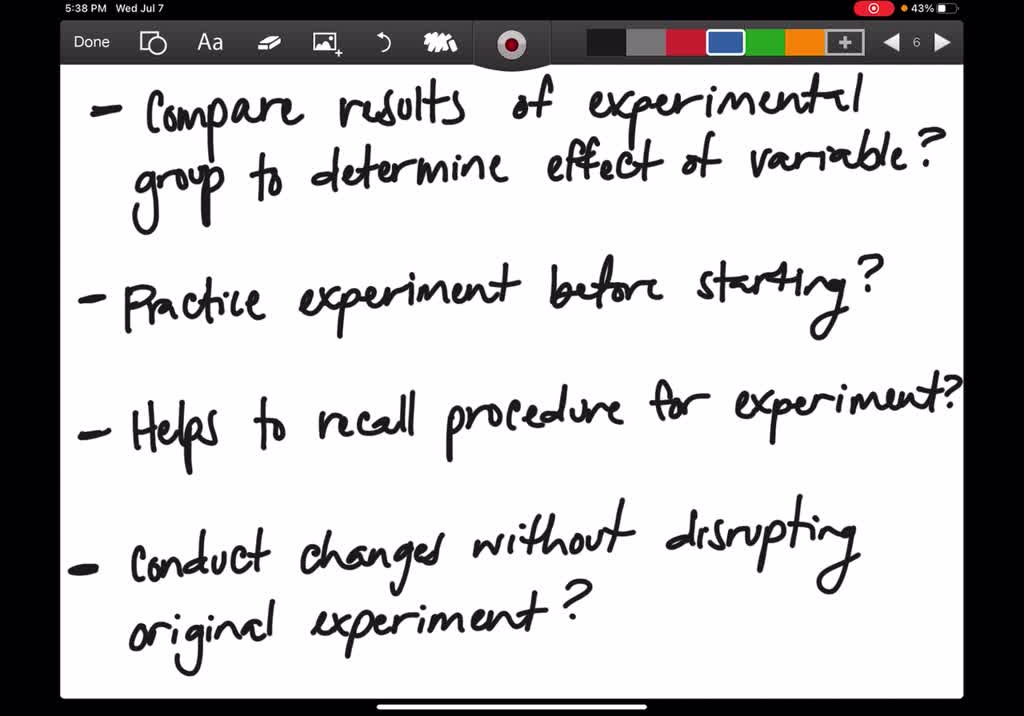 5:38 PM Wed Jul 7
43%
Done
Aa
6
- Compare results of experimental
group to determine effect of variable?
- Practice experiment before starting?
- Helps to recall procedure for experiment?
- Conduct changes without disrupting
original experiment?